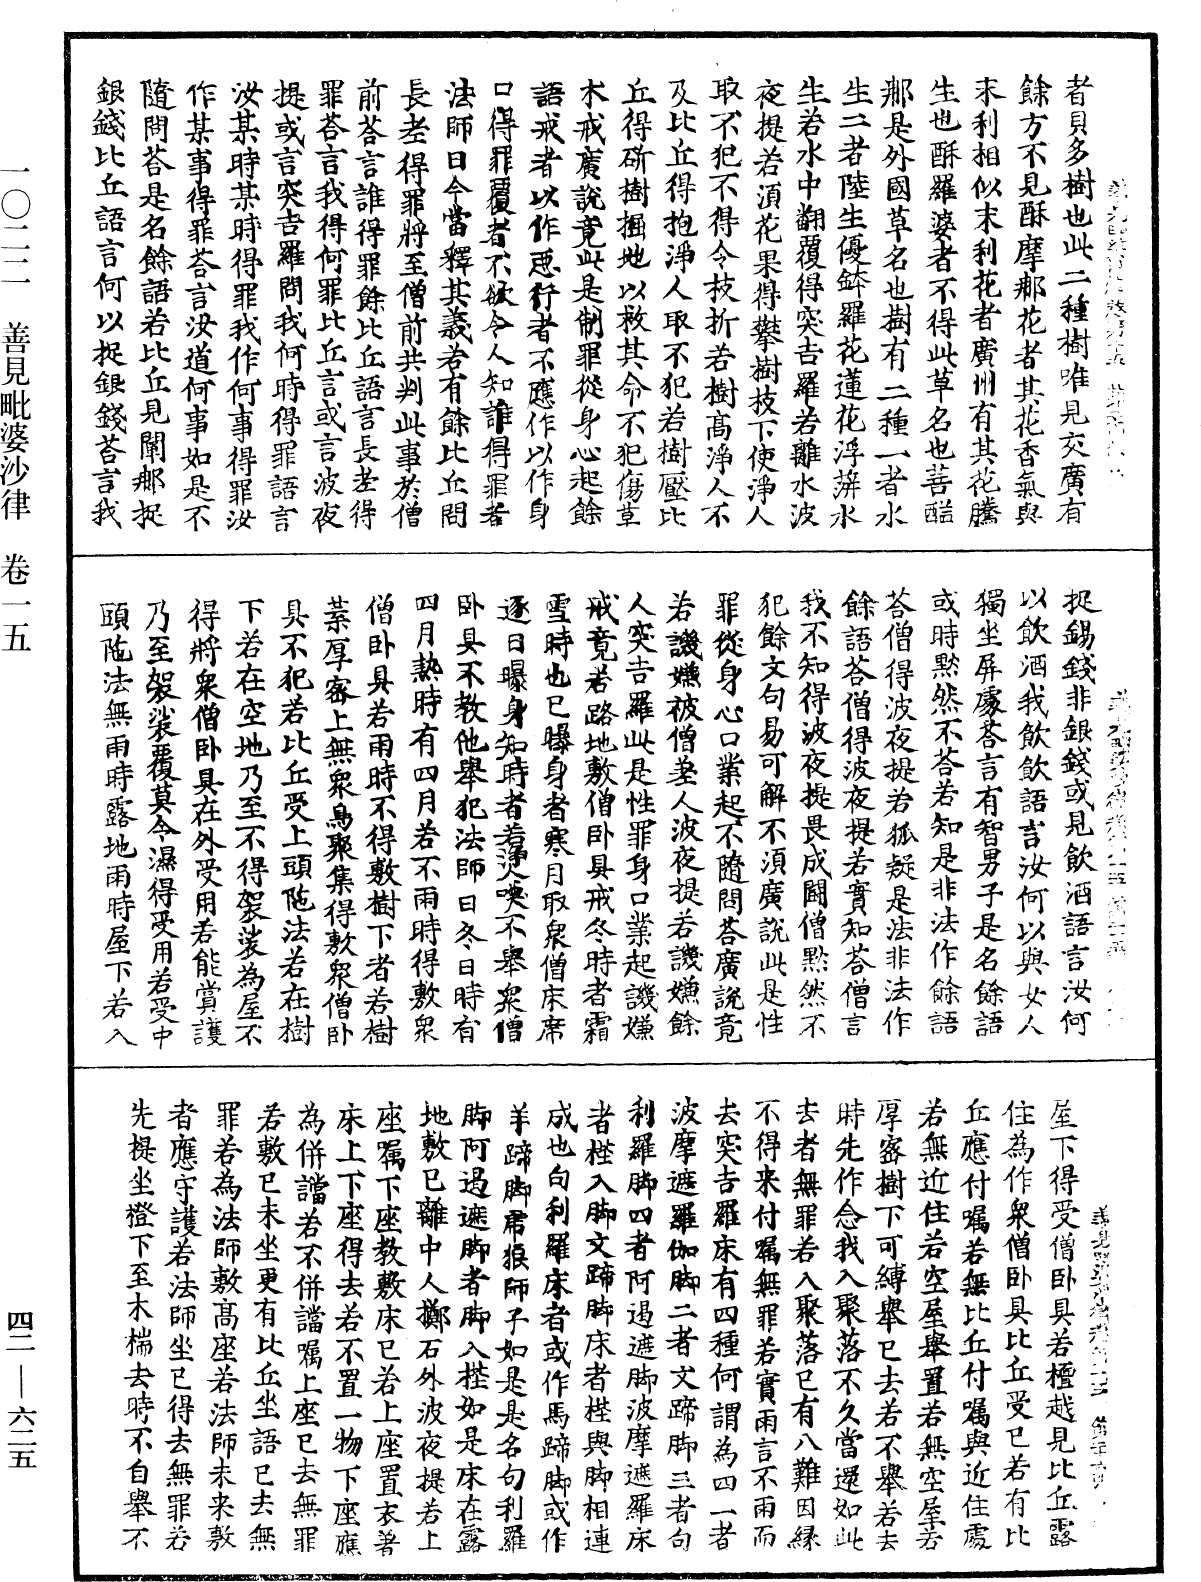 者貝多樹也此二種樹唯見交廣有
餘方不見酥摩那花者其花香氣與
末利相似末利花者廣州有其花騰
生也酥羅婆者不得此草名也善䓗
那是外國草名也樹有二種一者水
生二者陸生優鉢羅花蓮花浮蓱水
生若水中翻覆得突吉羅若離水波
夜提若須花果得攀樹枝下使淨人
取不犯不得令枝折若樹高淨人不
及比丘得抱淨人取不犯若樹壓比
丘得斫樹掘地以救其命不犯傷草
木戒廣說竟此是制罪從身心起餘
語戒者以作惡行者不應作以作身
口得罪覆者不欲令人知誰得罪者
法師曰今當釋其義若有餘比丘問
長老得罪將至僧前共判此事於僧
前荅言誰得罪餘比丘語言長老得
罪荅言我得何罪比丘言或言波夜
提或言突吉羅問我何時得罪語言
汝某時某時得罪我作何事得罪汝
作某事得罪荅言汝道何事如是不
隨問荅是名餘語若比丘見闡那捉
銀錢比丘語言何以捉銀錢荅言我
捉錫錢非銀錢或見飲酒語言汝何
以飲酒我飲飲語言汝何以與女人
獨坐屏處荅言有智男子是名餘語
或時默然不荅若知是非法作餘語
荅僧得波夜提若狐疑是法非法作
餘語荅僧得波夜提若實知荅僧言
我不知得波夜提畏成鬪僧默然不
犯餘文句易可解不須廣說此是性
罪從身心口業起不隨問荅廣說竟
若譏嫌被僧差人波夜提若譏嫌餘
人突吉羅此是性罪身口業起譏嫌
戒竟若路地敷僧卧具戒冬時者霜
雪時也已曝身者寒月取衆僧床席
逐日曝身知時者若淨人喚不舉衆僧
卧具不教他舉犯法師曰冬日時有
四月熱時有四月若不雨時得敷衆
僧卧具若雨時不得敷樹下者若樹
葉厚密上無衆鳥聚集得敷衆僧卧
具不犯若比丘受上頭陁法若在樹
下若在空地乃至不得袈裟為屋不
得將衆僧卧具在外受用若能賞護
乃至袈裟覆莫令濕得受用若受中
頭陁法無雨時露地雨時屋下若入
屋下得受僧卧具若檀越見比丘露
住為作衆僧卧具比丘受已若有比
丘應付嘱若無比丘付嘱與近住處
若無近住若空屋舉置若無空屋若
厚密樹下可縛舉已去若不舉若去
時先作念我入聚落不久當還如此
去者無罪若入聚落已有八難因緣
不得来付嘱無罪若實雨言不雨而
去突吉羅床有四種何謂為四一者
波摩遮羅伽脚二者文蹄脚三者句
利羅脚四者阿遏遮脚波摩遮羅床
者桎入脚文蹄脚床者桎與脚相連
成也句利羅床者或作馬蹄脚或作
羊蹄脚虎狼師子如是是名句利羅
脚阿遏遮脚者脚入桎如是床在露
地敷已離中人擲石外波夜提若上
座嘱下座教敷床已若上座置衣著
床上下座得去若不置一物下座應
為併讜若不併讜嘱上座已去無罪
若敷已未坐更有比丘坐語已去無
罪若為法師敷高座若法師未来敷
者應守護若法師坐已得去無罪若
先提坐隥下至木椯去時不自舉不
一〇二二 善見毗婆沙律 卷一五
四二—六二五